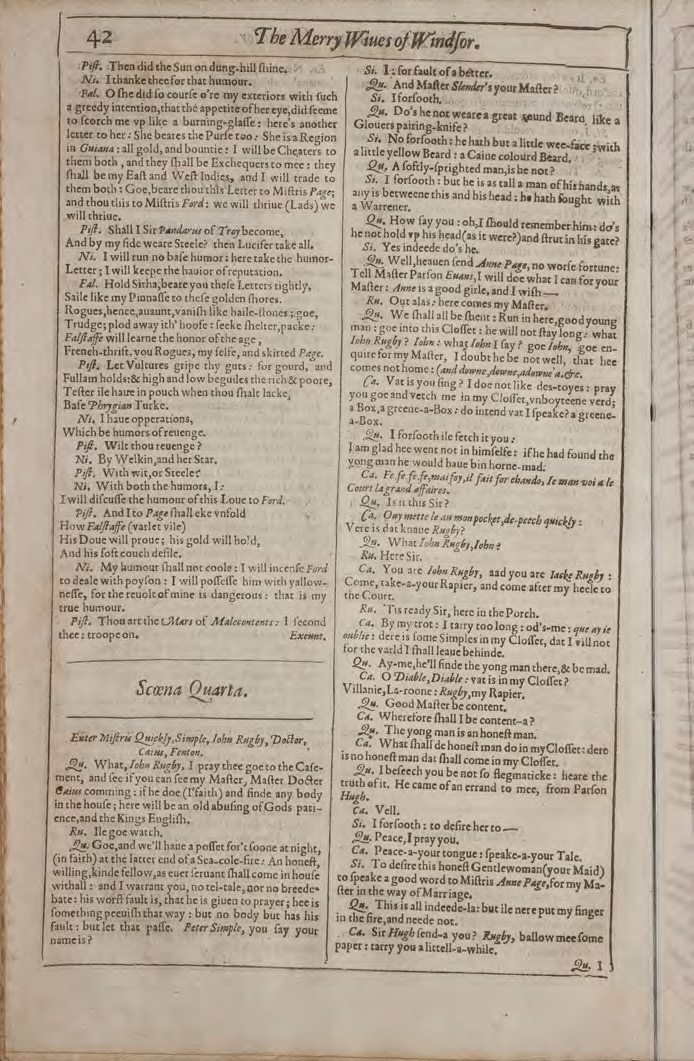 42
The Merry Wiues of Windsor.
Pist. Then did the Sun on dung-hill shine.
Ni. I thanke thee for that humour.
Fal. O she did so course o're my exteriors with such
a greedy intention, that the appetite of her eye, did seeme
to scorch me vp like a burning-glasse: here's another
letter to her: She beares the Purse too: She is a Region
in Guiana: all gold, and bountie: I will be Cheaters to
them both, and they shall be Exchequers to mee: they
shall be my East and West Indies, and I will trade to
them both: Goe, beare thou this Letter to Mistris Page;
and thou this to Mistris Ford: we will thriue (Lads) we
will thriue.
Pist. Shall I Sir Pandarus of Troy become,
And by my side weare Steele? then Lucifer take all.
Ni. I will run no base humor: here take the humor-
Letter; I will keepe the hauior of reputation.
Fal. Hold Sirha, beare you these Letters tightly,
Saile like my Pinnasse to these golden shores.
Rogues, hence, auaunt, vanish like haile-stones; goe,
Trudge; plod away ith' hoofe: seeke shelter, packe:
Falstaffe will learne the honor of the age,
French-thrift, you Rogues, my selfe, and skirted Page.
Pist. Let Vultures gripe thy guts: for gourd, and
Fullam holds: & high and low beguiles the rich & poore,
Tester ile haue in pouch when thou shalt lacke,
Base Phrygian Turke.
Ni. I haue opperations,
Which be humors of reuenge.
Pist. Wilt thou reuenge?
Ni. By Welkin, and her Star.
Pist. With wit, or Steele?
Ni. With both the humors, I:
I will discusse the humour of this Loue to Ford.
Pist. And I to Page shall eke vnfold
How Falstaffe (varlet vile)
His Doue will proue; his gold will hold,
And his soft couch defile.
Ni. My humour shall not coole: I will incense Ford
to deale with poyson: I will possesse him with yallow-
nesse, for the reuolt of mine is dangerous: that is my
true humour.
Pist. Thou art the Mars of Malecontents: I second
thee: troope on. Exeunt.
Scœna Quarta.
Enter Mistris Quickly, Simple, Iohn Rugby, Doctor,
Caius, Fenton.
Qu. What, Iohn Rugby, I pray thee goe to the Case-
ment, and see if you can see my Master, Master Docter
Caius comming: if he doe (I'faith) and finde any body
in the house; here will be an old abusing of Gods pati-
ence, and the Kings English.
Ru. Ile goe watch.
Qu. Goe, and we'll haue a posset for't soone at night,
(in faith) at the latter end of a Sea-cole-fire: An honest,
willing, kinde fellow, as euer seruant shall come in house
withall: and I warrant you, no tel-tale, nor no breede-
bate: his worst fault is, that he is giuen to prayer; hee is
something peeuish that way: but no body but has his
fault: but let that passe. Peter Simple, you say your
name is?
Si. I: for fault of a better.
Qu. And Master Slender's your Master?
Si. I forsooth.
Qu. Do's he not weare a great round Beard, like a
Glouers pairing-knife?
Si. No forsooth: he hath but a little wee-face; with
a little yellow Beard: a Caine colourd Beard.
Qu. A softly-sprighted man, is he not?
Si. I forsooth: but he is as tall a man of his hands, as
any is betweene this and his head: he hath fought with
a Warrener.
Qu. How say you: oh, I should remember him: do's
he not hold vp his head (as it were?) and strut in his gate?
Si. Yes indeede do's he.
Qu. Well, heauen send Anne Page, no worse fortune:
Tell Master Parson Euans, I will doe what I can for your
Master: Anne is a good girle, and I wish—
Ru. Out alas: here comes my Master.
Qu. We shall all be shent: Run in here, good young
man: goe into this Closset: he will not stay long: what
Iohn Rugby? Iohn: what Iohn I say? goe Iohn, goe en-
quire for my Master, I doubt he be not well, that hee
comes not home: (and downe, downe, adowne'a. &c.
Ca. Vat is you sing? I doe not like des-toyes: pray
you goe and vetch me in my Closset, vnboyteene verd;
a Box, a greene-a-Box: do intend vat I speake? a greene-
a-Box.
Qu. I forsooth ile fetch it you:
I am glad hee went not in himselfe: if he had found the
yong man he would haue bin horne-mad.
Ca. Fe, fe, fe, fe, mai foy, il fait for ehando, Ie man voi a le
Court la grand affaires.
Qu. Is it this Sir?
Ca. Ouy mette le au mon pocket, de-peech quickly:
Vere is dat knaue Rugby?
Qu. What Iohn Rugby, Iohn?
Ru. Here Sir.
Ca. You are Iohn Rugby, aad you are Iacke Rugby:
Come, take-a-your Rapier, and come after my heele to
the Court.
Ru. 'Tis ready Sir, here in the Porch.
Ca. By my trot: I tarry too long: od's-me: que ay ie
oublie: dere is some Simples in my Closset, dat I vill not
for the varld I shall leaue behinde.
Qu. Ay-me, he'll finde the yong man there, & be mad.
Ca. O Diable, Diable: vat is in my Closset?
Villanie, La-roone: Rugby, my Rapier.
Qu. Good Master be content.
Ca. Wherefore shall I be content-a?
Qu. The yong man is an honest man.
Ca. What shall de honest man do in my Closset: dere
is no honest man dat shall come in my Closset.
Qu. I beseech you be not so flegmaticke: heare the
truth of it. He came of an errand to mee, from Parson
Hugh.
Ca. Vell.
Si. I forsooth: to desire her to—
Qu. Peace, I pray you.
Ca. Peace-a-your tongue: speake-a-your Tale.
Si. To desire this honest Gentlewoman (your Maid)
to speake a good word to Mistris Anne Page, for my Ma-
ster in the way of Marriage.
Qu. This is all indeede-la: but ile nere put my finger
in the fire, and neede not.
Ca. Sir Hugh send-a you? Rugby, ballow mee some
paper: tarry you a littell-a-while.
Qu. I